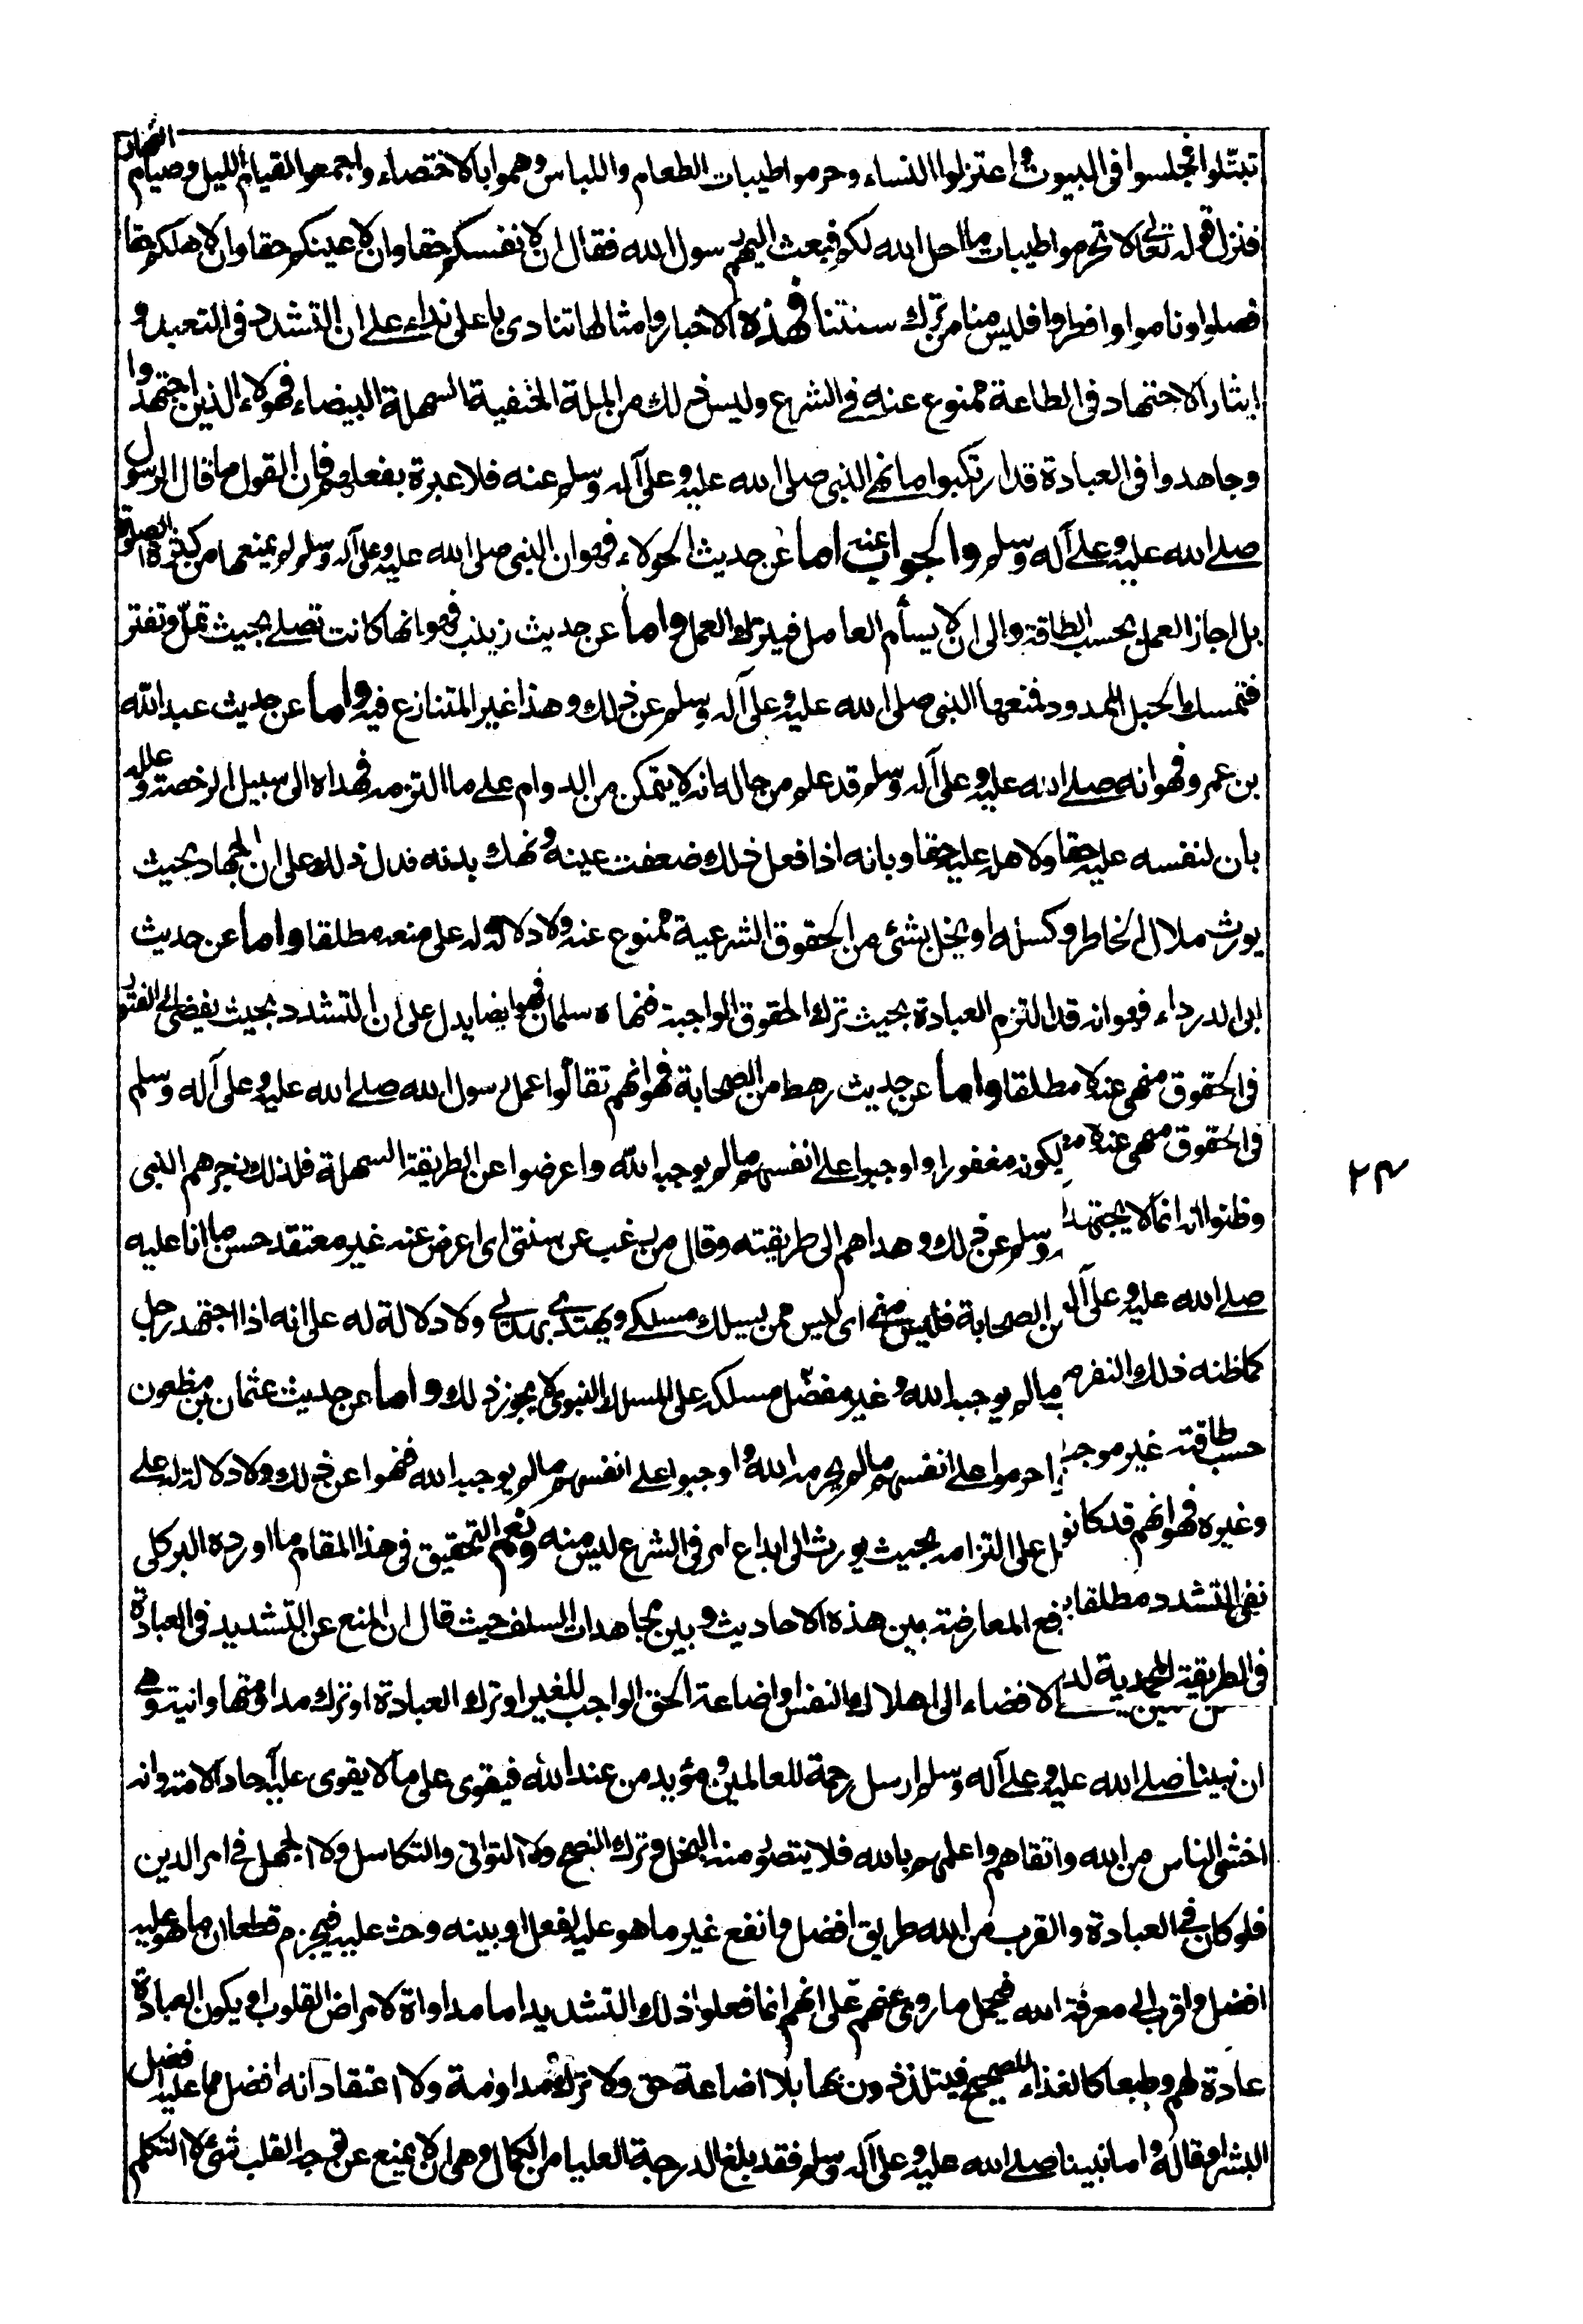 تبتّلوا فجلسوا فى البيوت و اعتزلوا النساء وحرموا طيبات الطعام واللباس وهموا بالاختصاء واجمعوا لقيام الليل وصيام النهار
فنزل قوله تعالى لا تحرموا طيبات ما احل الله لكم فبعث اليهم رسول الله فقال ان لانفسكم حقا وان لاعينكم حقا وان لاهلكم حقا
فصلوا وناموا وافطروا فليس منا من ترك سنتنا فهذه الاخبار وامثالها تنادى باعلى نداء على ان التشدد فى التعبد و
ايثار الاجتهاد فى الطاعة ممنوع عنه فى الشرع وليس ذلك من الملة الحنفية السهلة البيضاء فهولاء الذين اجتهدوا
وجاهدوا فى العبادة قد ارتكبوا ما نهى النبى صلى الله عليه وعلى آله وسلم عنه فلا عبرة بفعلهم فان القول ما قال الرسول
صلى الله عليه وعلى آله وسلم والجواب عنه اما عن حديث الحولاء فهو ان النبى صلى الله عليه وعلى آله وسلم لم يمنعها من كثرة الصلوة
بل اجاز العمل بحسب الطاقة والى ان لا يسأم العامل فيترك العمل واما عن حديث زينب فهو انها كانت تصلى بحيث تملّ وتفتر
فتمسك الحبل الممدود فمنعها النبى صلى الله عليه وعلى آله وسلم عن ذلك وهذا غير المتنازع فيه واما عن حديث عبد الله
بن عمرو فهو انه صلى الله عليه وعلى آله وسلم قد علم من حاله انه لا يتمكن من الدوام على ما التزمه فهداه الى سبيل الرخصة وعلله
بان لنفسه عليه حقا ولاهله عليه حقا وبانه اذا فعل ذلك ضعفت عينه ونهك بدنه فدل ذلك على ان الجهاد بحيث
يورث ملال الخاطر وكسله او يخل بشئ من الحقوق الشرعية ممنوع عنه ولا دلالة له على منعه مطلقا واما عن حديث
ابى الدرداء فهو انه قد التزم العبادة بحيث ترك الحقوق الواجبة فنهاه سلمان فهو ايضا يدل على ان التشدد بحيث يفضى الى الفتور
فى الحقوق منهى عنه لا مطلقا واما عن حديث رهط من الصحابة فهو انهم تقالّوا عمل رسول الله صلى الله عليه وعلى آله وسلم
فى الحقوق منهى عنه لا م لكونه مغفورا واوجبوا على انفسهم ما لم يوجبه الله واعرضوا عن الطريقة السهلة فلذلك زجرهم النبى
وظنوا انه انما لا يجتهد وسلم عن ذلك وهداهم الى طريقته وقال من رغب عن سنتى اى اعرض عنه غير معتقد حسن ما انا عليه
صلى الله عليه وعلى آله من الصحابة فليس منى اى ليس ممن يسلك مسلكى ويهتدى بهديى ولا دلالة له على انه اذا اجتهد رجل
كما ظنه ذلك النفر م ما لم يوجبه الله وغير مفضّل مسلكه على المسلك النبوى لا يجوز ذلك واما عن حديث عثمان بن مظعون
حسب طاقته غير موجب احرموا على انفسهم ما لم يحرمه الله او اوجبوا على انفسهم ما لم يوجبه الله فنهوا عن ذلك ولا دلالة له على
وغيره فهو انهم قد كانو اع على التزامه بحيث يورث الى ابداع امر فى الشرع ليس منه ونعم التحقيق فى هذا المقام ما اورده البركلى
نفى التشدد مطلقا ب فع المعارضة بين هذه الاحاديث وبين مجاهدات السلف حيث قال ان المنع عن التشديد فى العبادة
فى الطريقة المحمدية لد الافضاء الى اهلاك النفس او اضاعة الحق الواجب للغير او ترك العبادة او ترك مداومتها وانيته وهى
ان نبينا صلى الله عليه وعلى آله وسلم ارسل رحمة للعالمين ومؤيد من عند الله فيقوى على ما لا يقوى عليه آحاد الامة وانه
اخشى الناس من الله واتقاهم واعلمهم بالله فلا يتصور منه البخل وترك النصح ولا التوانى والتكاسل ولا الجهل فى امر الدين
فلو كان فى العبادة والقرب من الله طريق افضل وانفع غير ما هو عليه لفعل او بينه وحث عليه فيجزم قطعا ان ما هو عليه
افضل واقرب الى معرفة الله فيحمل ما روى عنهم على انهم انما فعلوا ذلك التشديد اما مداواة لامراض القلوب او يكون العبادة
عادة لهم وطبعا كالغذاء للصحيح فيتلذذون بها بلا اضاعة حق ولا ترك مداومة ولا اعتقاد انه افضل مما عليه افضل
البشر او قاله واما نبينا صلى الله عليه وعلى آله وسلم فقد بلغ الدرجة العليا من الكمال وهى ان لا يمنع عن توجه القلب شئ لا التكلم
٢٤